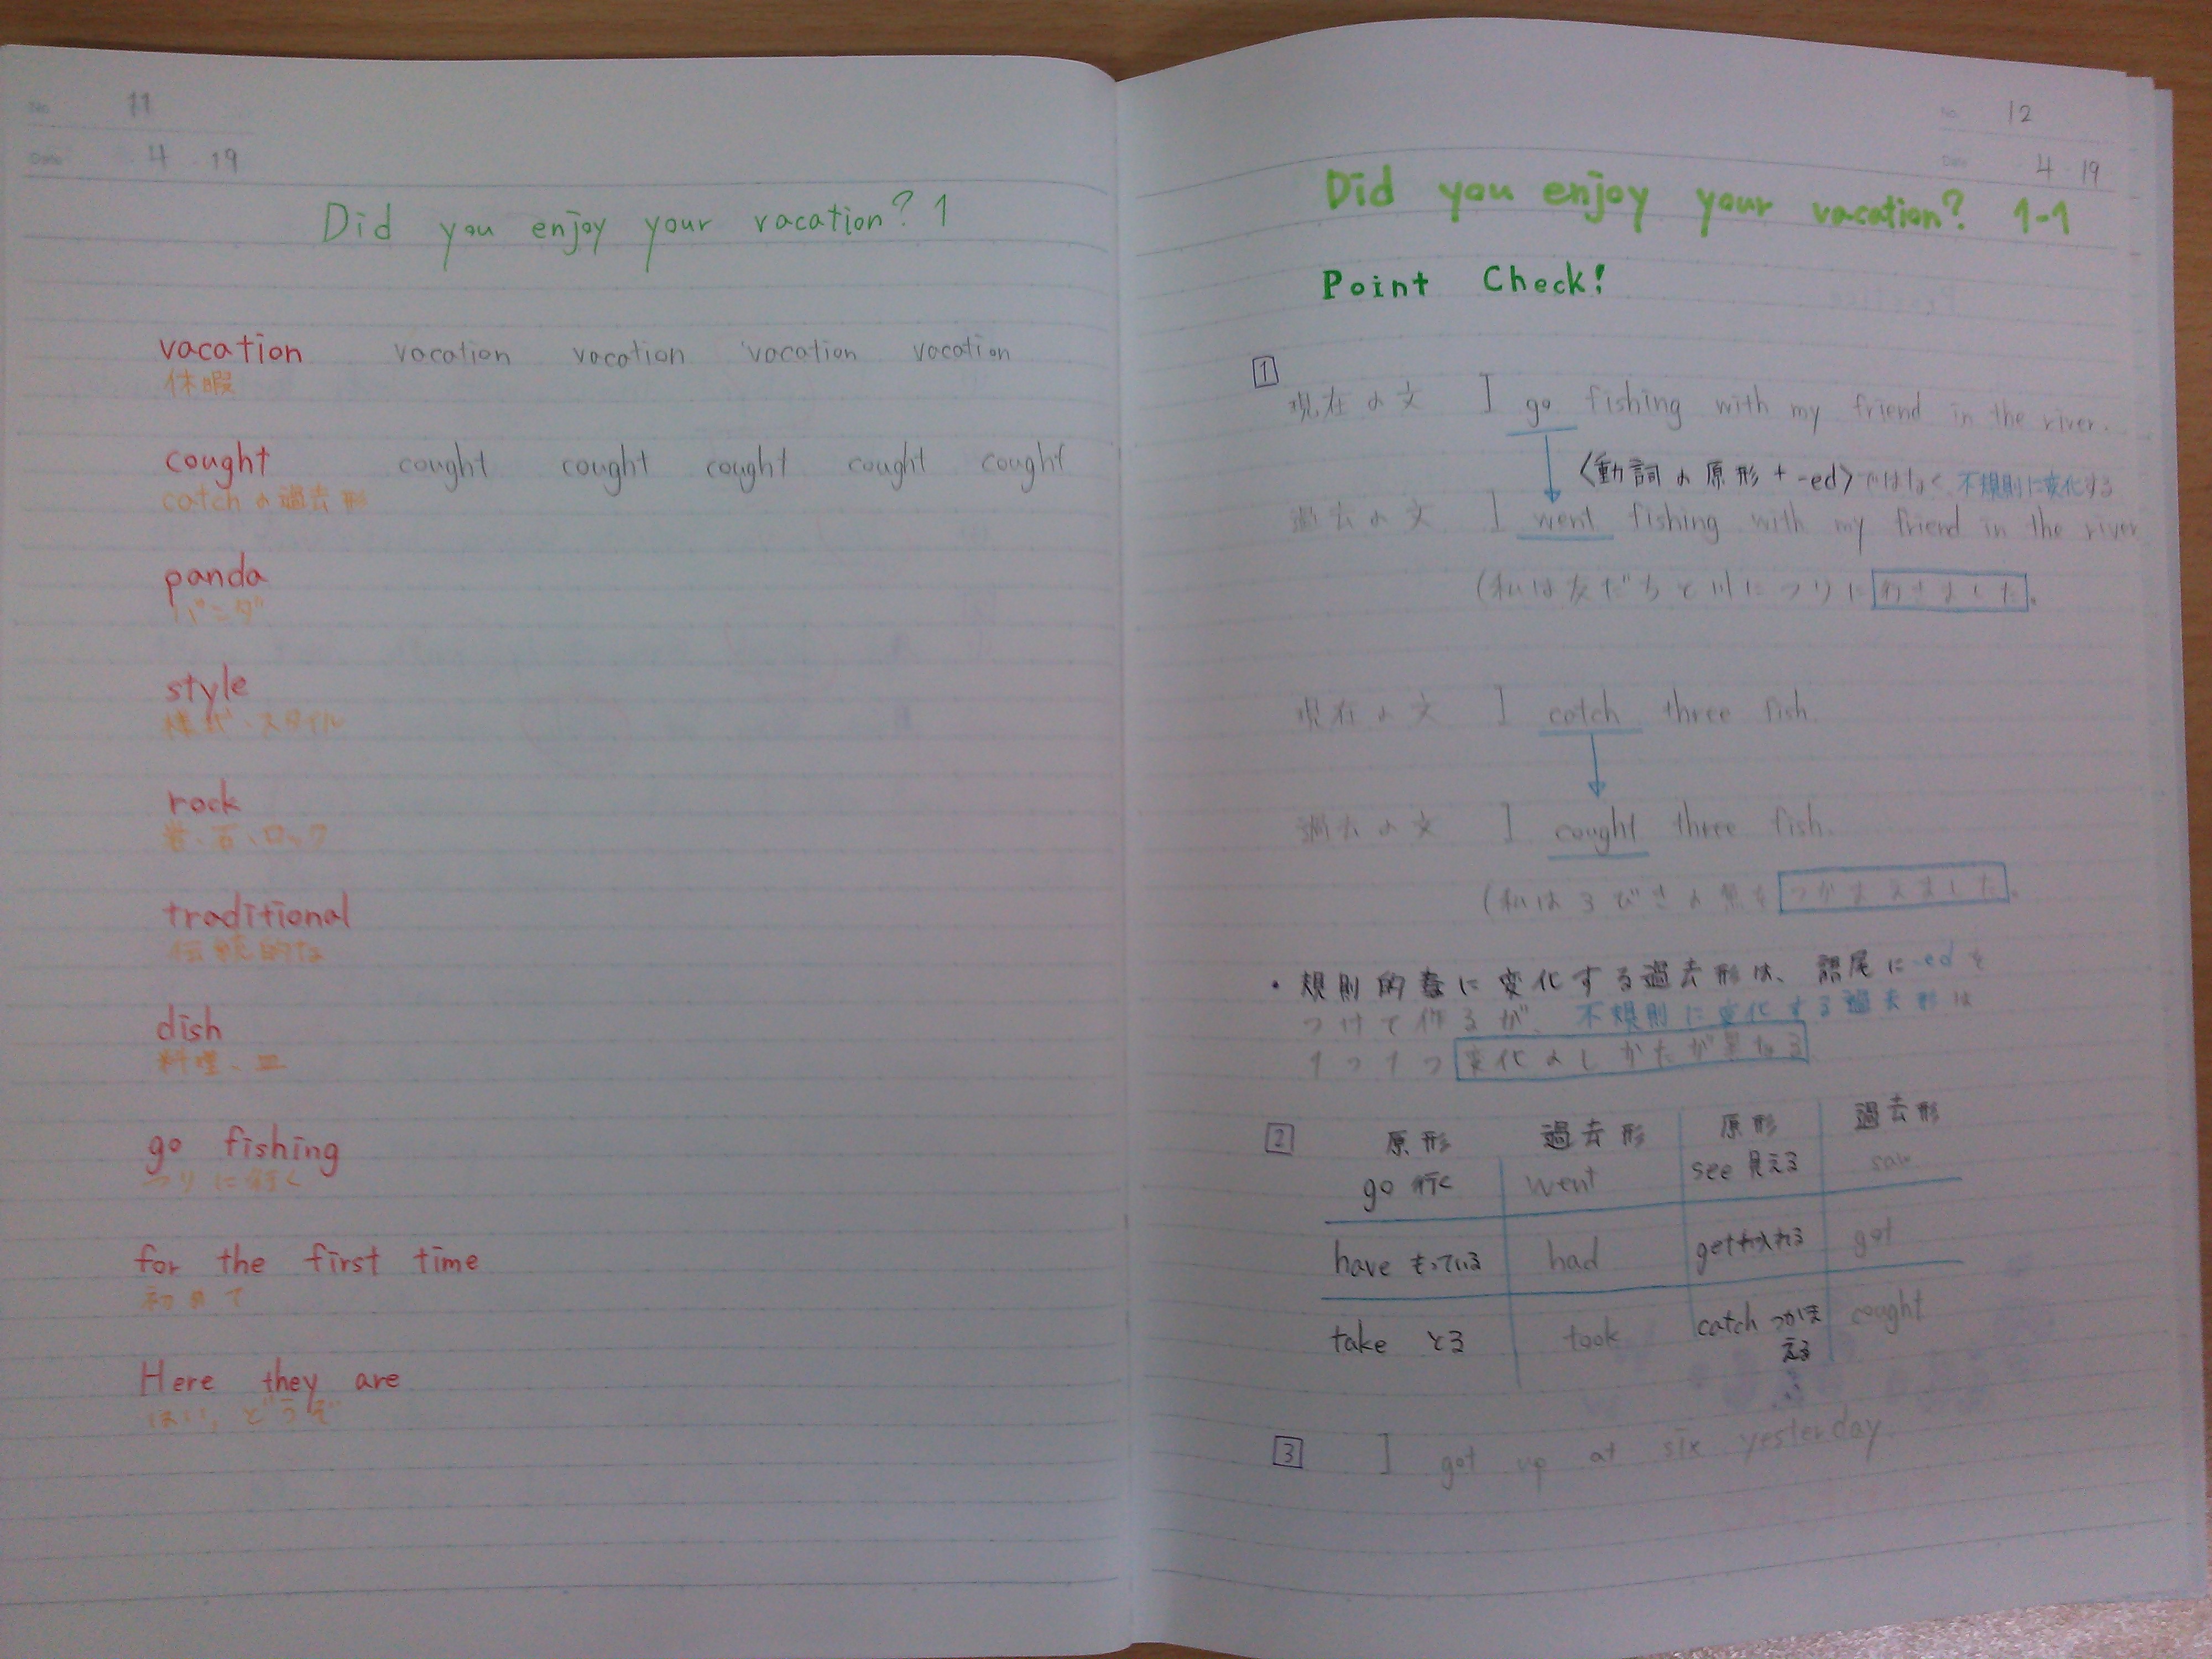 No. 11
Date 4 19
Did you enjoy your vacation? 1
vacation vacation vacation vacation vacation
休暇
cought cought cought cought cought cought
catchの過去形
panda
パンダ
style
様式・スタイル
rock
岩、石、ロック
traditional
伝統的な
dish
料理、皿
go fishing
つりに行く
for the first time
初めて
Here they are
はい、どうぞ
No. 12
Date 4 19
Did you enjoy your vacation? 1-1
Point Check!
1
現在の文 I go fishing with my friend in the river.
〈動詞の原形 + -ed〉ではなく、不規則に変化する
過去の文 I went fishing with my friend in the river
(私は友だちと川につりに行きました。
現在の文 I catch three fish.
過去の文 I cought three fish.
(私は3びきの魚をつかまえました。
・規則的に変化する過去形は、語尾に-edを
つけて作るが、不規則に変化する過去形は
1つ1つ変化のしかたが異なる
2 原形 過去形 原形 過去形
go 行く went see 見える saw
have もっている had get 手に入れる got
take とる took catch つかまえる cought
3 I got up at six yesterday.